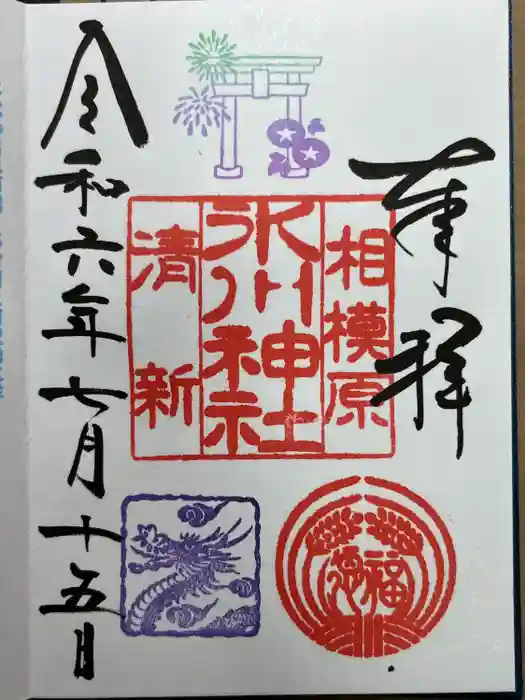 奉拝
相模原
氷川神社
清新
福徳
令和六年七月十五日